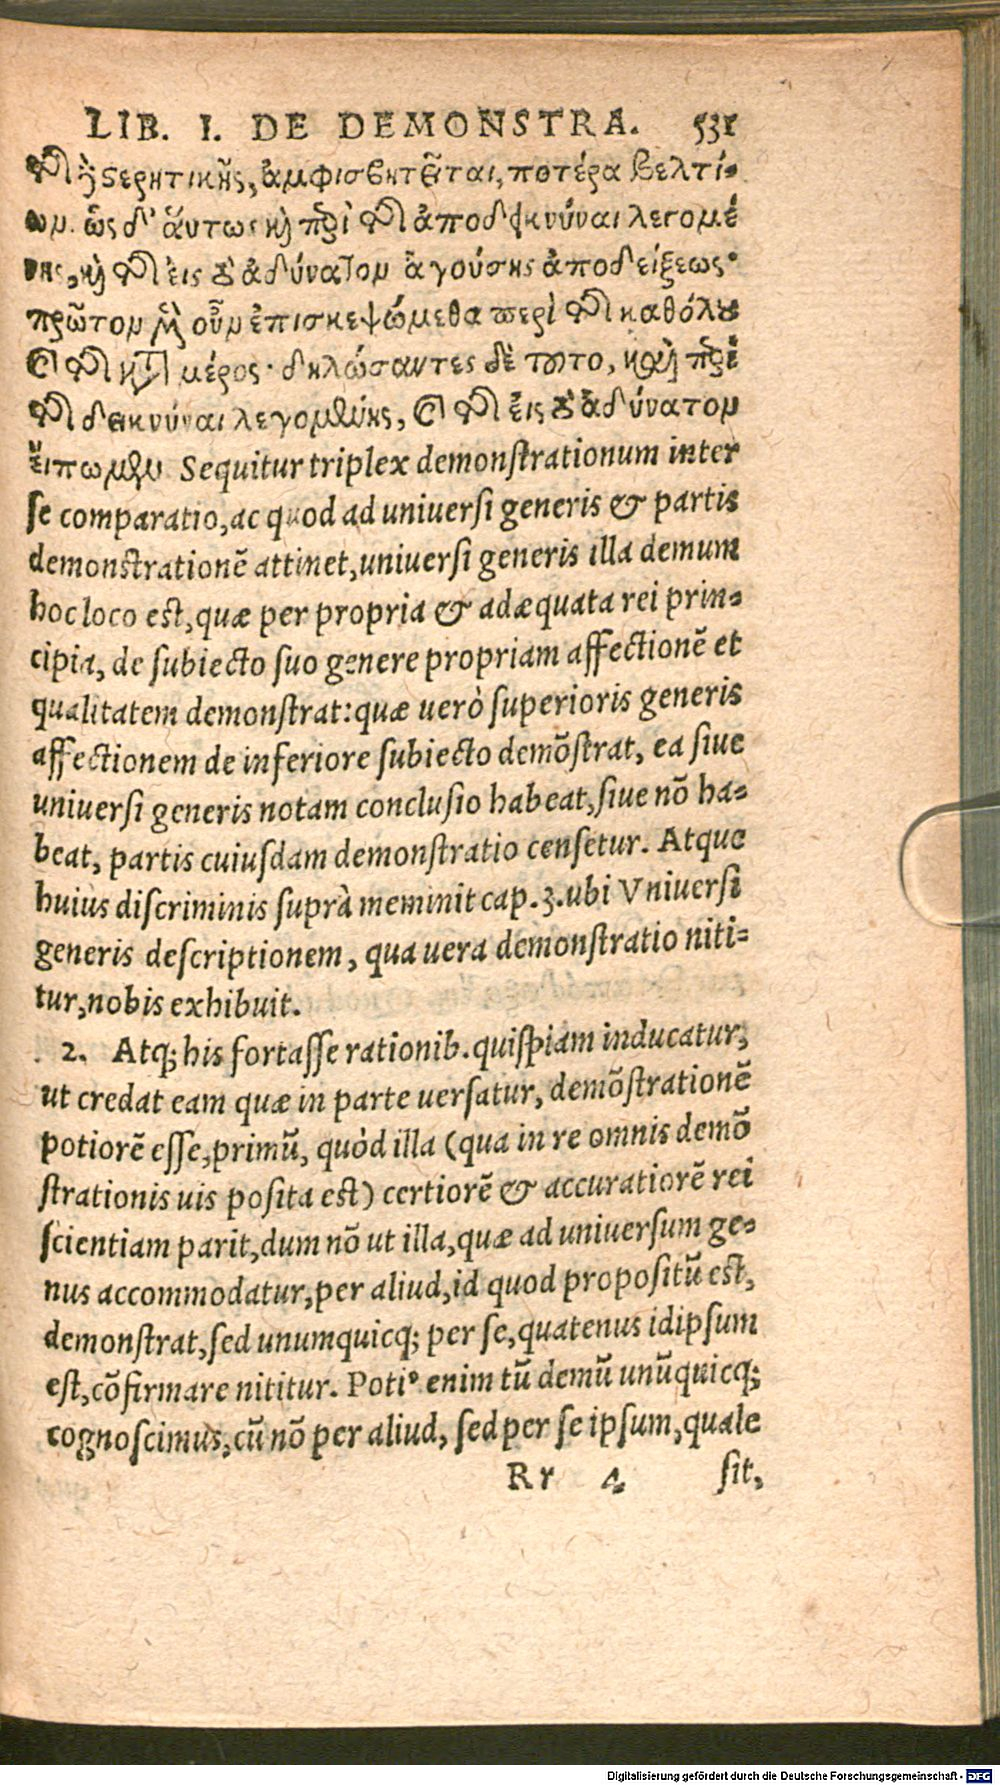 LIB. I. DE DEMONSTRA. 531
τῆς ἢ στερητικῆς, ἀμφισβητεῖται, ποτέρα βελτί-
ων. ὡς δ' αὕτως καὶ περὶ τῆς ἀποδεικνύναι λεγομέ
νης, καὶ τῆς εἰς τὸ ἀδύνατον ἀγούσης ἀποδείξεως·
πρῶτον μὲν οὖν ἐπισκεψώμεθα περὶ τῆς καθόλου
καὶ τῆς κατὰ μέρος· δηλώσαντες δὲ τοῦτο, καὶ περὶ
τῆς δεικνύναι λεγομένης, καὶ τῆς εἰς τὸ ἀδύνατον
εἴπωμεν. Sequitur triplex demonstrationum inter
se comparatio, ac quod ad uniuersi generis & partis
demonstrationẽ attinet, uniuersi generis illa demum
hoc loco est, quæ per propria & adæquata rei prin-
cipia, de subiecto suo genere propriam affectionẽ et
qualitatem demonstrat: quæ uerò superioris generis
affectionem de inferiore subiecto demõstrat, ea siue
uniuersi generis notam conclusio habeat, siue nõ ha-
beat, partis cuiusdam demonstratio censetur. Atque
huius discriminis suprà meminit cap. 3. ubi Vniuersi
generis descriptionem, qua uera demonstratio niti-
tur, nobis exhibuit.
2. Atq; his fortasse rationib. quispiam inducatur,
ut credat eam quæ in parte uersatur, demõstrationẽ
potiorẽ esse, primũ, quòd illa (qua in re omnis demõ
strationis uis posita est) certiorẽ & accuratiorẽ rei
scientiam parit, dum nõ ut illa, quæ ad uniuersum ge-
nus accommodatur, per aliud, id quod propositũ est,
demonstrat, sed unumquicq; per se, quatenus idipsum
est, cõfirmare nititur. Poti⁹ enim tũ demũ unũquicq;
cognoscimus, cũ nõ per aliud, sed per se ipsum, quale
Rr 4 sit,
Digitalisierung gefördert durch die Deutsche Forschungsgemeinschaft - DFG